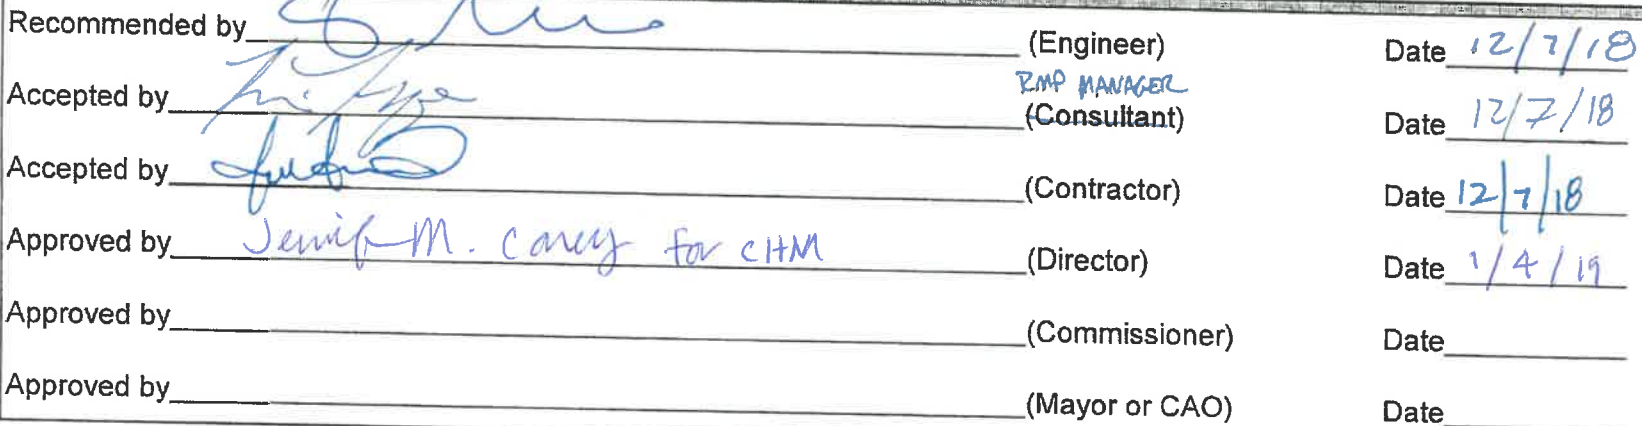 Recommended by (Engineer) Date 12/7/18
RMP MANAGER
Accepted by (Consultant) Date 12/7/18
Accepted by (Contractor) Date 12/7/18
Approved by Jennif M. Carey for CHM (Director) Date 1/4/19
Approved by (Commissioner) Date
Approved by (Mayor or CAO) Date